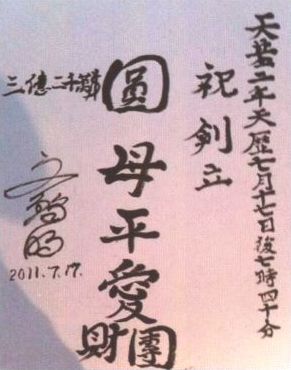 天基二年天歷七月十七日後七時四十分
祝創立
圓母平愛
財團
三億二千
2011.7.17.